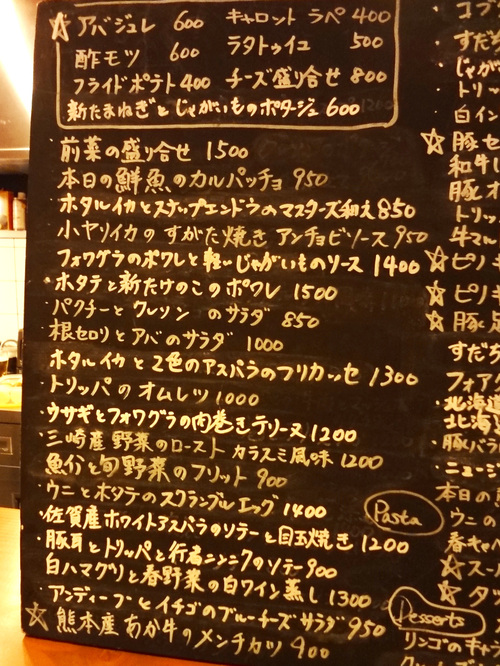 ☆アバジュレ 600 キャロット ラペ 400
酢モツ 600 ラタトゥイユ 500
フライドポテト 400 チーズ盛り合せ 800
新たまねぎとじゃがいものポタージュ 600
・前菜の盛り合せ 1500
本日の鮮魚のカルパッチョ 950
・ホタルイカとスナップエンドウのマスターズ和え 850
・小ヤリイカのすがた焼き アンチョビソース 950
・フォワグラのポワレと軽いじゃがいものソース 1400
・ホタテと新たけのこのポワレ 1500
・パクチーとクレソンのサラダ 850
・根セロリとアバのサラダ 1000
・ホタルイカと2色のアスパラのフリカッセ 1300
・トリッパのオムレツ 1000
・ウサギとフォワグラの肉巻きテリーヌ 1200
・三崎産野菜のロースト カラスミ風味 1200
・魚介と旬野菜のフリット 900
・ウニとホタテのスクランブルエッグ 1400
・佐賀産ホワイトアスパラのソテーと目玉焼き 1200
・豚耳とトリッパと行者ニンニクのソテー 900
・白ハマグリと春野菜の白ワイン蒸し 1300
・アンディーブとイチゴのブルーチーズサラダ 950
☆熊本産あか牛のメンチカツ 900
すだち
じゃが
・トリッ
白イン
☆豚セ
和牛
トリッ
牛マル
☆ピノ
☆ピリ
☆豚
すだち
フォア
・北海道
北海道
・豚バラ
・ニュー
本日の
Pasta
ウニの
春キャベ
☆スー
☆タ
Desserts
リンゴのキャ